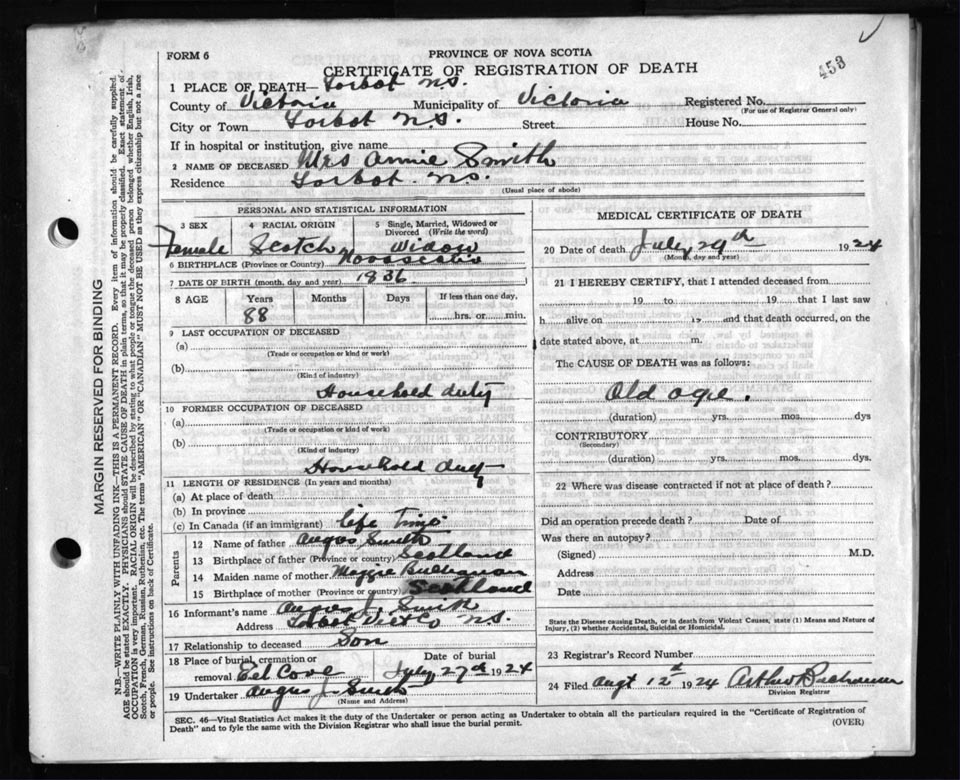 453
FORM 6
PROVINCE OF NOVA SCOTIA
CERTIFICATE OF REGISTRATION OF DEATH
1 PLACE OF DEATH— Tarbot N.S.
County of Victoria Municipality of Victoria Registered No.
(For use of Registrar General only)
City or Town Tarbot N.S. Street House No.
If in hospital or institution, give name
2 NAME OF DECEASED Mrs Annie Smith
Residence Tarbot N.S.
(Usual place of abode)
PERSONAL AND STATISTICAL INFORMATION
3 SEX 4 RACIAL ORIGIN 5 Single, Married, Widowed or Divorced (Write the word)
Female Scotch Widow
6 BIRTHPLACE (Province or Country) Nova Scotia
7 DATE OF BIRTH (month, day and year) 1836
8 AGE Years Months Days If less than one day,
88 hrs. or min.
9 LAST OCCUPATION OF DECEASED
(a)
(Trade or occupation or kind or work)
(b)
(Kind of industry)
Household duty
10 FORMER OCCUPATION OF DECEASED
(a)
(Trade or occupation or kind or work)
(b)
(Kind of industry)
Household duty
11 LENGTH OF RESIDENCE (In years and months)
(a) At place of death
(b) In province
(c) In Canada (if an immigrant) life Time
Parents
12 Name of father Angus Smith
13 Birthplace of father (Province or country) Scotland
14 Maiden name of mother Maggie Buchanan
15 Birthplace of mother (Province or country) Scotland
16 Informant's name Angus J. Smith
Address Tarbot Vict Co N.S.
17 Relationship to deceased Son
18 Place of burial, cremation or removal Eel Cove Date of burial July 27th 1924
19 Undertaker Angus J Smith
(Name and Address)
MEDICAL CERTIFICATE OF DEATH
20 Date of death July 29th 1924
(Month, day and year)
21 I HEREBY CERTIFY, that I attended deceased from
19 to 19 that I last saw
h alive on 19 and that death occurred, on the
date stated above, at m.
The CAUSE OF DEATH was as follows:
Old age.
(duration) yrs. mos. dys
CONTRIBUTORY
(Secondary)
(duration) yrs. mos. dys.
22 Where was disease contracted if not at place of death?
Did an operation precede death? Date of
Was there an autopsy?
(Signed) M.D.
Address
Date
State the Disease causing Death, or in death from Violent Causes, state (1) Means and Nature of
Injury, (2) whether Accidental, Suicidal or Homicidal.
23 Registrar's Record Number
24 Filed Augt 12th 1924 Arthur Buchanan
Division Registrar
SEC. 46—Vital Statistics Act makes it the duty of the Undertaker or person acting as Undertaker to obtain all the particulars required in the "Certificate of Registration of
Death" and to fyle the same with the Division Registrar who shall issue the burial permit.
(OVER)
MARGIN RESERVED FOR BINDING
N.B.—WRITE PLAINLY WITH UNFADING INK—THIS IS A PERMANENT RECORD. Every item of information should be carefully supplied.
AGE should be stated EXACTLY. PHYSICIANS should STATE CAUSE OF DEATH in plain terms, so that it may be properly classified. Exact statement of
OCCUPATION is very important. RACIAL ORIGIN will be described by stating to what people or tongue the deceased person belonged whether English, Irish,
Scotch, French, German, Russian, Ruthenian, etc. The terms "AMERICAN" OR "CANADIAN" MUST NOT BE USED as they express citizenship but not a race
or people. See instructions on back of Certificate.